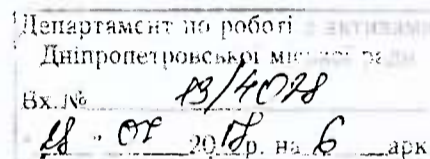 Департамент по роботі з активами
Дніпропетровської міської ради
Вх.№ 13/4078
07 2018р. на 6 арк